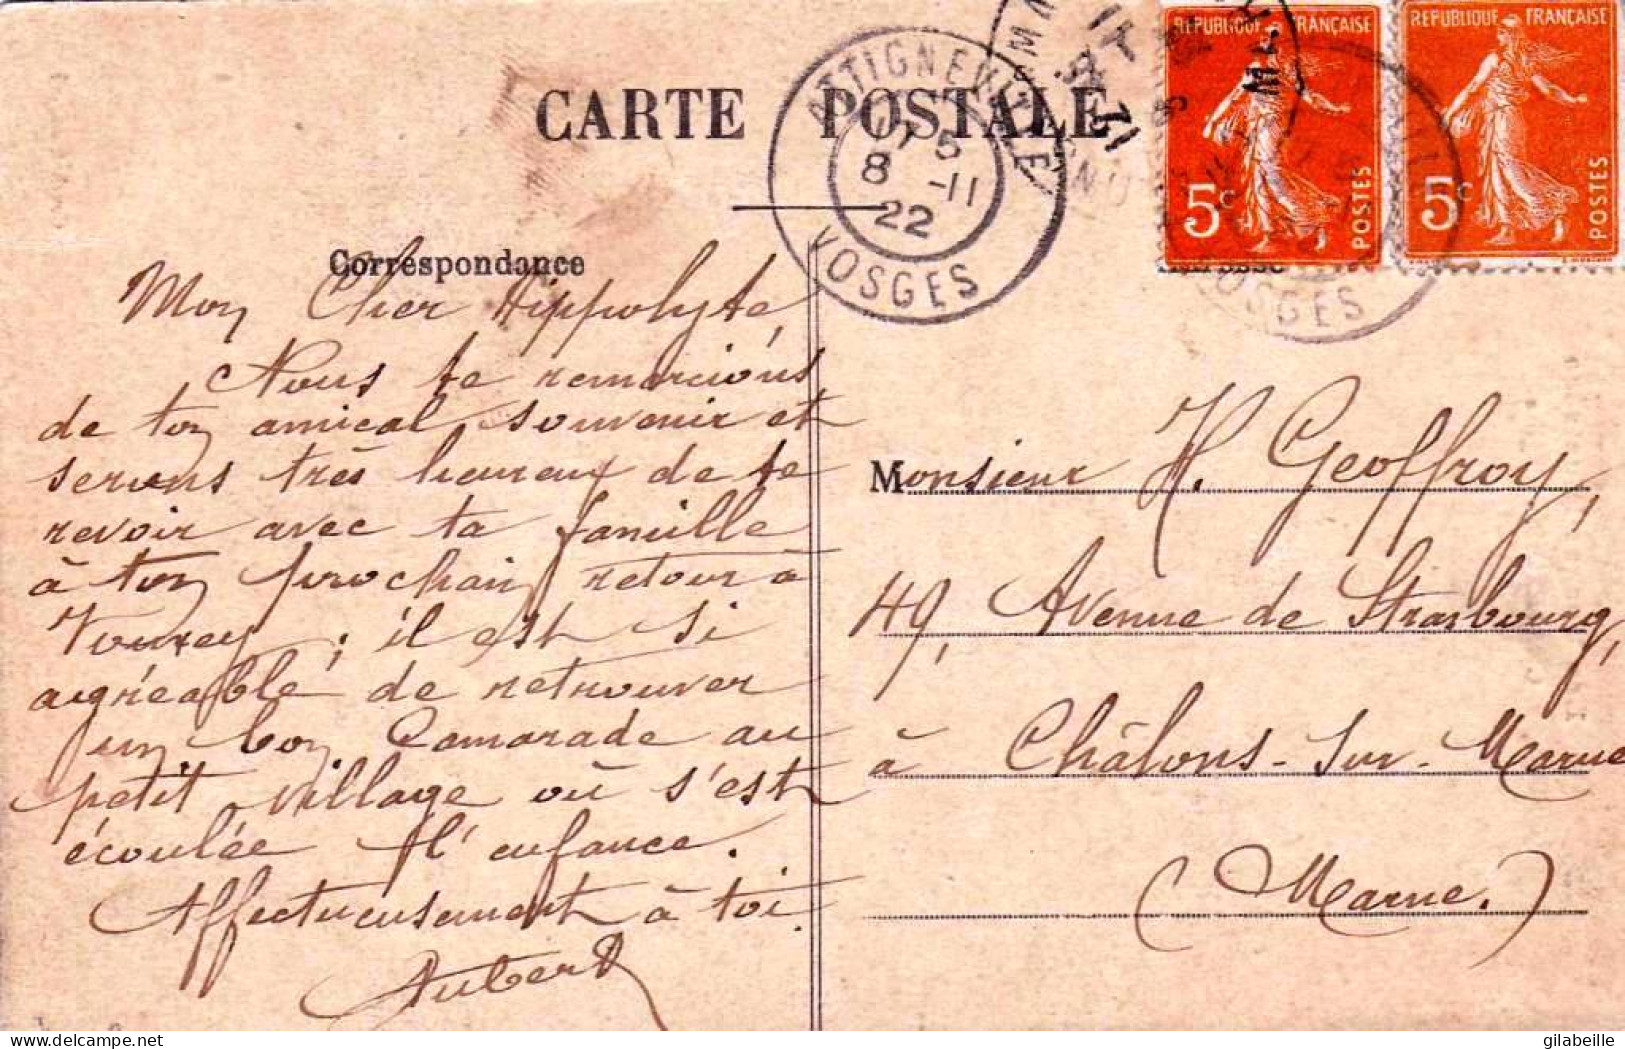 CARTE POSTALE
ATTIGNEVILLE
17 5
8 -11
22
VOSGES
REPUBLIQUE FRANÇAISE
5c
POSTES
REPUBLIQUE FRANÇAISE
5c
POSTES
VOSGES
Correspondance
Mon Cher Hippolyte,
Nous te remercions
de ton amical souvenir et
serons très heureux de te
revoir avec ta famille
à ton prochain retour à
; il est si
agréable de retrouver
un bon Camarade au
petit village où s'est
écoulée l'enfance.
Affectueusement à toi.
Aubert
Monsieur H. Geoffroy,
49, Avenue de Strasbourg,
à Châlons-sur-Marne
(Marne.)
gilabeille